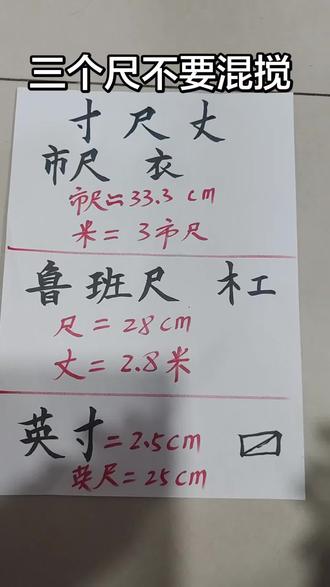 三个尺不要混搅
寸尺丈
市尺 衣
市尺=33.3cm
米=3市尺
鲁班尺 木工
尺=28cm
丈=2.8米
英寸=2.5cm
英尺=25cm